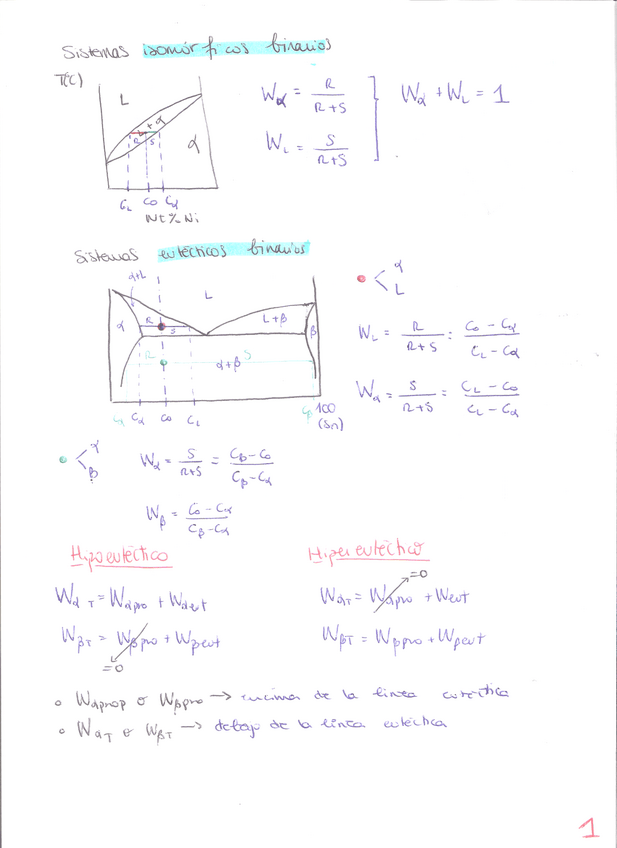 Sistemas isomórficos binarios
T(C)
L
L + α
R S
α
C_L Co Cα
Wt % Ni
Wα = R / R+S
W_L = S / R+S
Wα + W_L = 1
Sistemas eutécticos binarios
α+L
L
α
R S
L+β
β
R S
α+β
Cα Cα Co C_L Cβ 100
(Sn)
α
L
W_L = R / R+S = Co - Cα / C_L - Cα
Wα = S / R+S = C_L - Co / C_L - Cα
α
β
Wα = S / R+S = Cβ - Co / Cβ - Cα
Wβ = Co - Cα / Cβ - Cα
Hipoeutéctico
Wα T = Wαpro + Wαeut
WβT = Wβpro + Wβeut
=0
Hipereutéctico
=0
WαT = Wαpro + Weut
WβT = Wβpro + Wβeut
o Wαprop o Wβpro → encima de la linea eutéctica
o WαT o WβT → debajo de la linea eutéctica
1